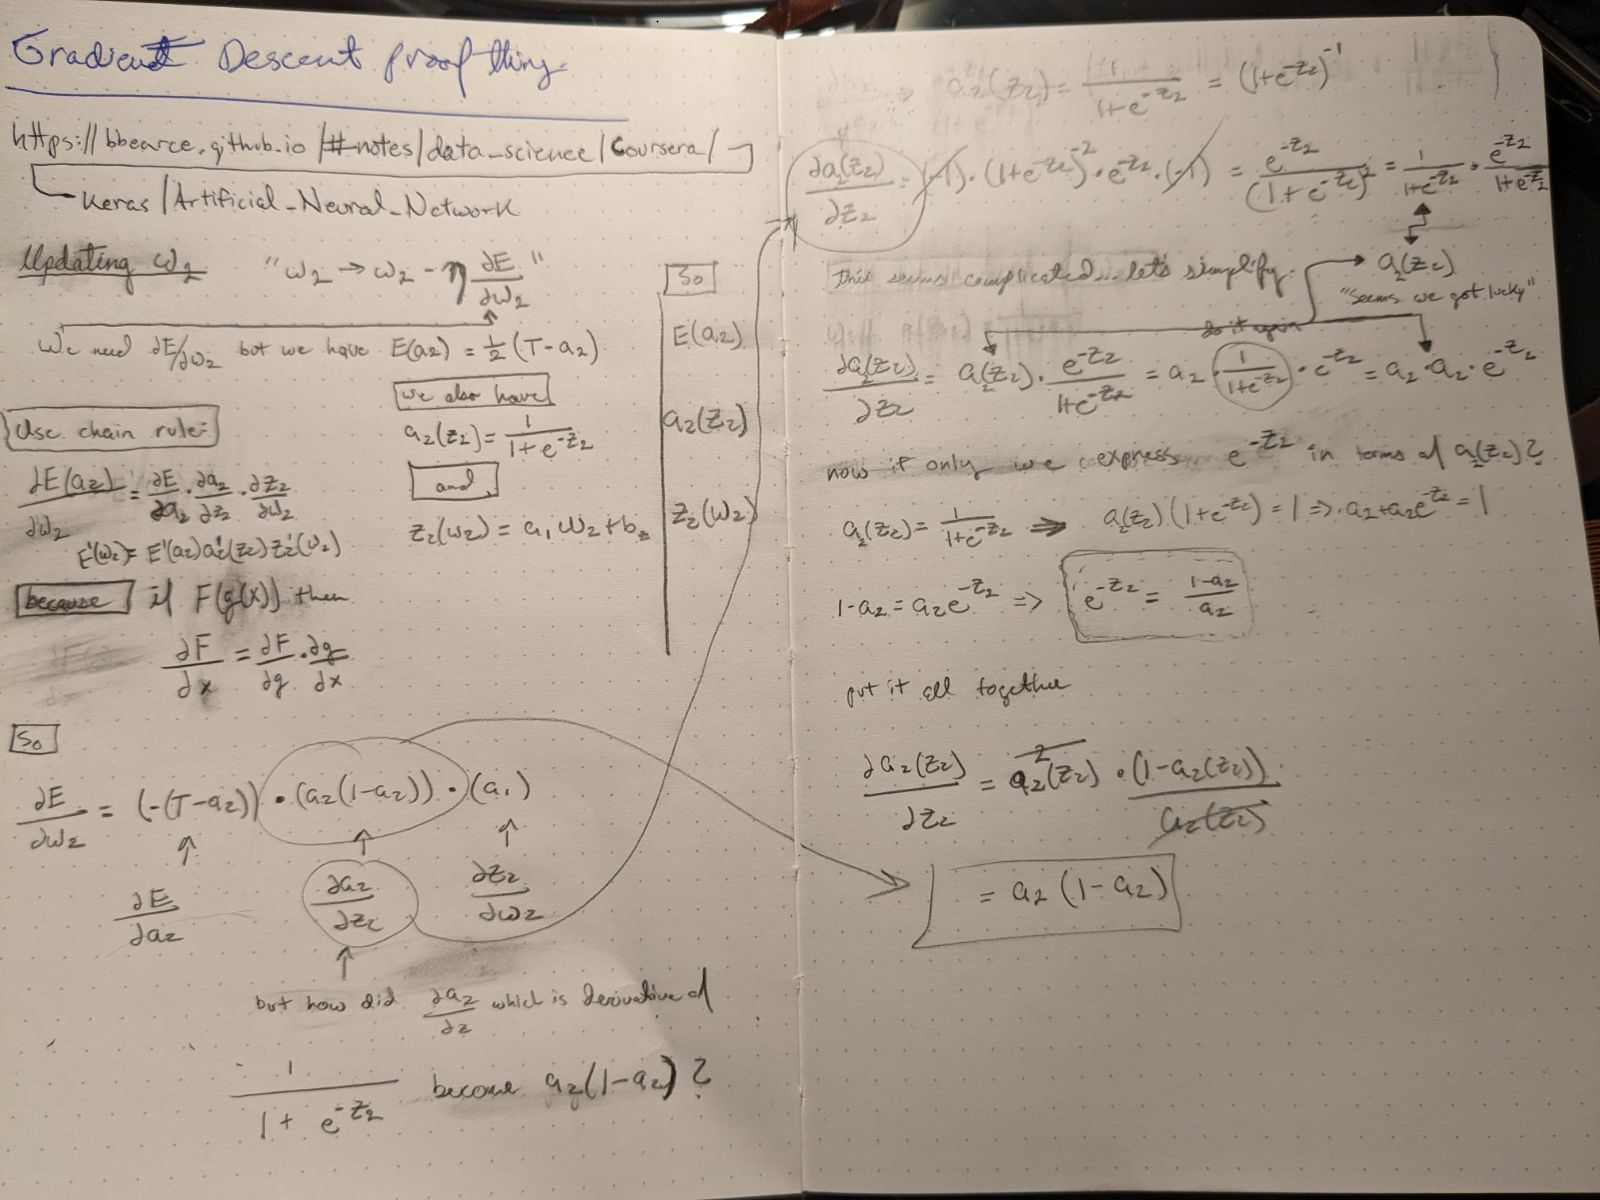 Gradient Descent proof thing
https://bbearce.github.io/#notes/data_science/Coursera/
Keras/Artificial_Neural_Network
Updating ω₂ "ω₂ → ω₂ - η ∂E/∂ω₂"
We need ∂E/∂ω₂ but we have E(a₂) = 1/2 (T-a₂)
Use chain rule:
∂E(a₂)/∂ω₂ = ∂E/∂a₂ · ∂a₂/∂z₂ · ∂z₂/∂ω₂
E'(ω₂) = E'(a₂) a₂'(z₂) z₂'(ω₂)
because if F(g(x)) then
∂F/∂x = ∂F/∂g · ∂g/∂x
we also have
a₂(z₂) = 1/(1 + e^-z₂)
and
z₂(ω₂) = a₁ω₂ + b₂
So
E(a₂)
a₂(z₂)
z₂(ω₂)
So
∂E/∂ω₂ = (-(T-a₂)) · (a₂(1-a₂)) · (a₁)
∂E/∂a₂ ∂a₂/∂z₂ ∂z₂/∂ω₂
but how did ∂a₂/∂z which is derivative of
1/(1 + e^-z₂) become a₂(1-a₂)?
→ a₂(z₂) = 1/(1+e^-z₂) = (1+e^-z₂)^-1
∂a₂(z₂)/∂z₂ = (-1)·(1+e^-z₂)^-2 · e^-z₂ · (-1) = e^-z₂/(1+e^-z₂)² = 1/(1+e^-z₂) · e^-z₂/(1+e^-z₂)
This seems complicated... let's simplify. a₂(z₂)
"seems we got lucky"
do it again
∂a₂(z₂)/∂z₂ = a₂(z₂) · e^-z₂/(1+e^-z₂) = a₂ · 1/(1+e^-z₂) · e^-z₂ = a₂·a₂·e^-z₂
now if only we express e^-z₂ in terms of a₂(z₂)?
a₂(z₂) = 1/(1+e^-z₂) ⇒ a₂(z₂)(1+e^-z₂) = 1 ⇒ a₂+a₂e^-z₂ = 1
1-a₂ = a₂e^-z₂ ⇒ e^-z₂ = (1-a₂)/a₂
put it all together
∂a₂(z₂)/∂z₂ = a₂²(z₂) · (1-a₂(z₂))/a₂(z₂)
= a₂(1-a₂)